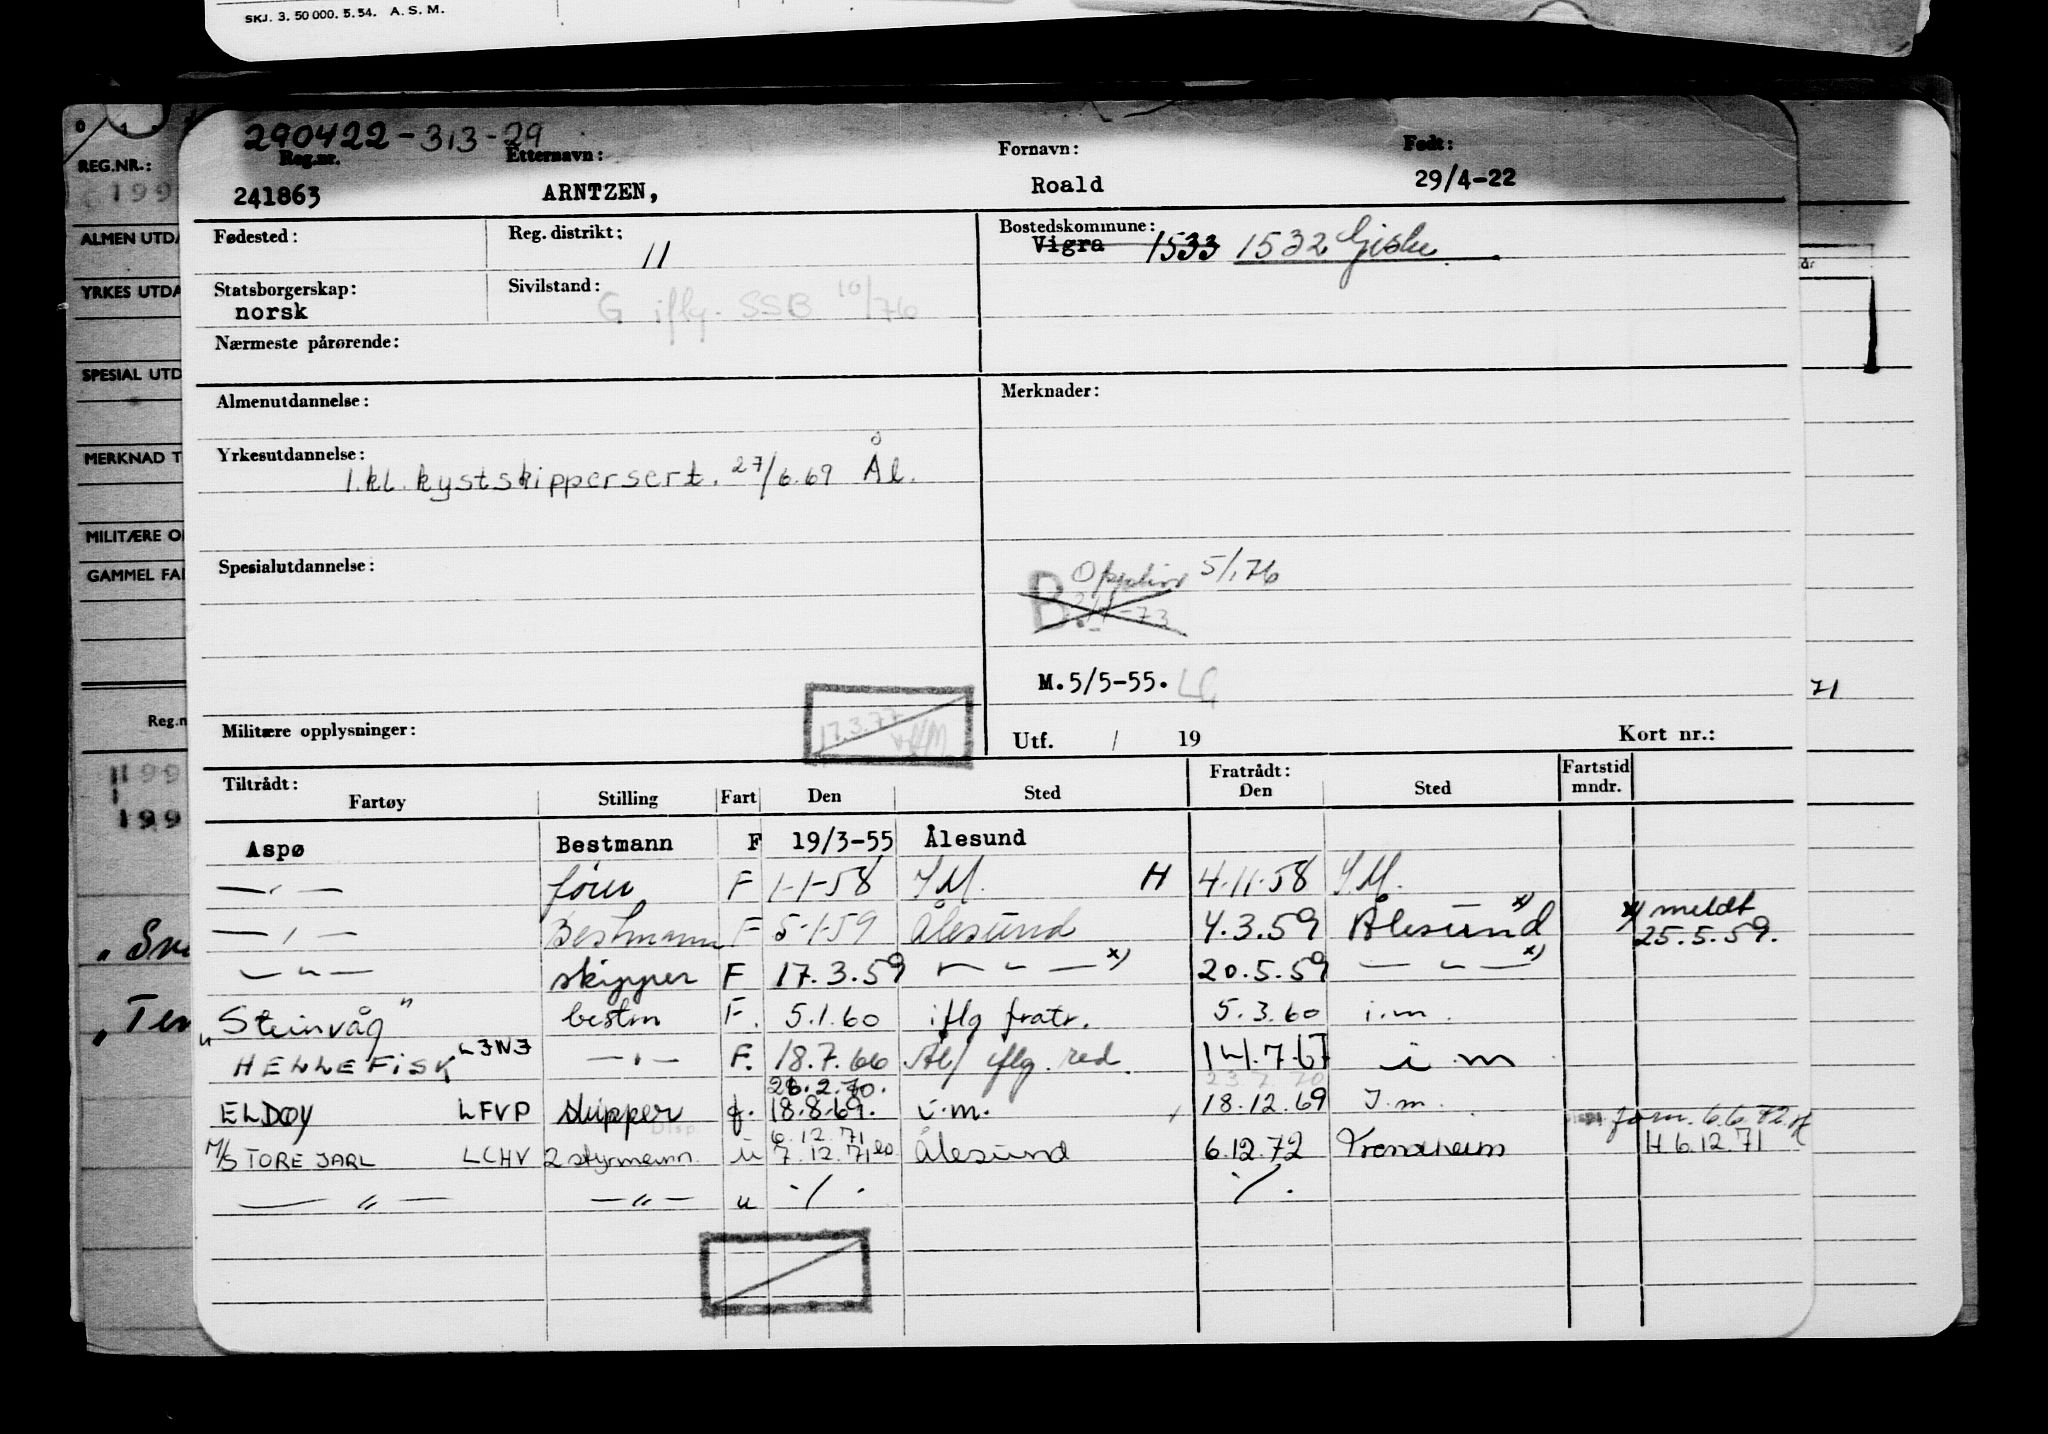 SKJ. 3. 50 000. 5. 54. A. S. M.
290422-313-29
REG.NR.:
Reg.nr. Etternavn: Fornavn: Født:
241863 ARNTZEN, Roald 29/4-22
ALMEN UTDA
Fødested: Reg. distrikt: 11 Bostedskommune:
Vigra 1533 1532 Giske
YRKES UTDA
Statsborgerskap: Sivilstand: G iflg. SSB 10/76
norsk
Nærmeste pårørende:
SPESIAL UTD
Almenutdannelse: Merknader:
MERKNAD T
Yrkesutdannelse:
1.kl. kystskippersert. 27/6.69 Ål.
MILITÆRE O
GAMMEL FA
Spesialutdannelse:
5/1 76
B.
M.5/5-55. LG
71
Reg.n
Militære opplysninger: 17.3.77
Utf. / 19 Kort nr.:
Tiltrådt: Fratrådt: Fartstid
Fartøy Stilling Fart Den Sted Den Sted mndr.
Aspø Bestmann F 19/3-55 Ålesund
—〃— fører F 1-1-58 I.M. H 4.11.58 I.M.
—〃— Bestmann F 5-1-59 Ålesund 4.3.59 Ålesund x) x) meldt
25.5.59.
—〃— skipper F 17.3.59 —〃— x) 20.5.59 —〃— x)
"Steinvåg" bestm F. 5.1.60 iflg fratr. 5.3.60 i.m.
HELLEFISK LJNJ —〃— F. 18.7.66 Ål/ iflg. red. 14.7.67 i m
28.2.70. 23.7.70
ELDØY LFVP skipper f. 18.8.69. i.m. 18.12.69 I.m.
6.12.71
M/S TORE JARL LCHV 2 styrmann. u 7.12.71 Ålesund 6.12.72 Trondheim H 6.12.71
—〃— —〃— u ./. ./.